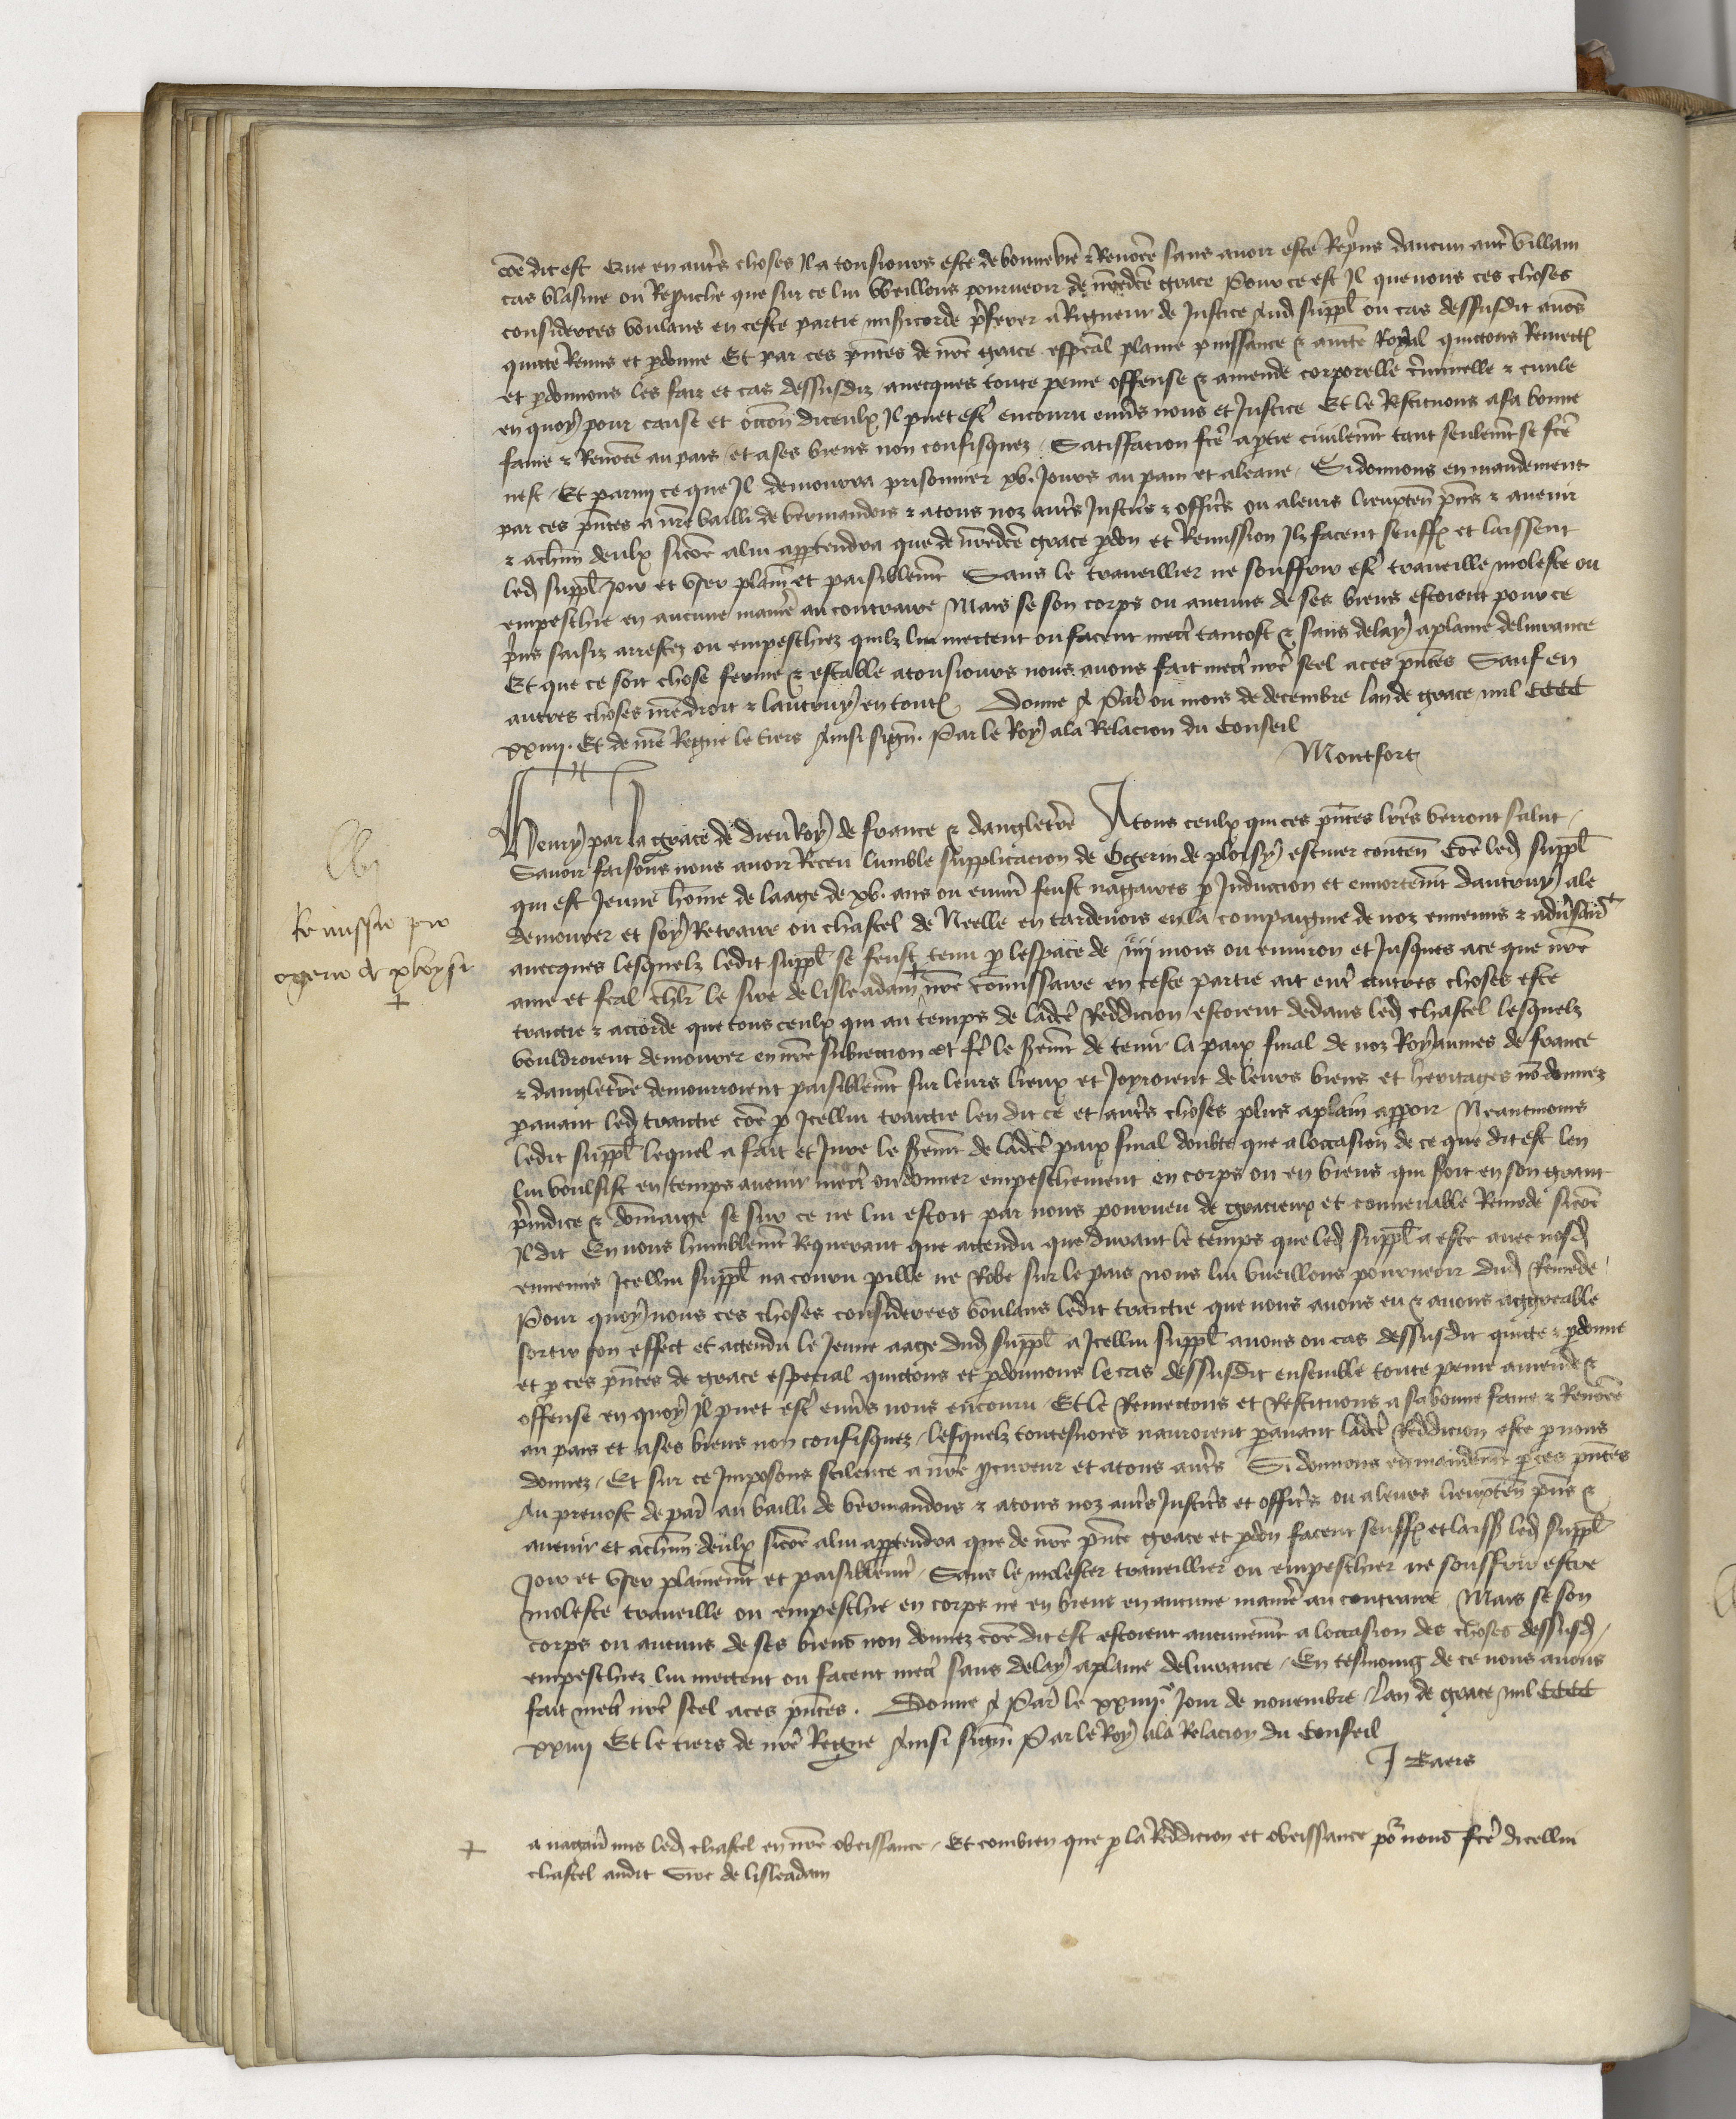 cõe dit est Que en autres choses Il a tousiours este de bonne vie & Renõee sans auoir este Reprins daucun autre villain
cas blasme ou Reprouche que sur ce lui vueillons pourueoir de nredcẽ grace Pour ce est Il que nous ces choses
considerees voulans en ceste partie misericorde preferer a Rigueur de Justice Aud suppl ou cas dessusdit auõs
quicte Remis et pdonne Et par ces pñtes de nre grace espẽal plaine puissance & aucte Royal quictons Remectõs
et pdonnons les fait et cas dessusdiz auecques toute peine offense & amende corporelle criminelle & ciuile
en quoy pour cause et occõn diceulx Il puet estre encouru enuers nous et Justice Et le Restituons a sa bonne
fame & Renõmee au pais et a ses biens non confisquez Satisfacion fcẽ a ptie ciuilemt tant seulemt se fcẽ
nest Et parmy ce que Il demourra prisonnier xv. Jours au pain et a leaue Si donnons en mandement
par ces pñtes a nre bailli de vermandois & a tous noz autres Justiciers & officiers ou a leurs lieuxten pñs & auenir
& a chũn deulx sicõe a lui appartendra que de nredcẽ grace pdon et Remission Ilz facent seuffrent et laissent
led suppl Joir et vser plainemt et paisiblemt Sans le trauellier ne souffrir estre traueille moleste ou
empeschie en aucune maniere au contraire Mais se son corps ou aucuns de ses biens estoient pour ce
prins saisiz arrestez ou empeschiez quilz lui mectent ou facent mectre tantost & sans delay a plaine deliurance
Et que ce soit chose ferme & estable a tousiours nous auons fait mectre nre seel a ces pñtes Sauf en
autres choses nre droit & lautruy en toutes Donne A Paris ou mois de decembre lan de grace mil CCCC
xxiiij. Et de nre Regne le tiers Ainsi signe. Par le Roy a la Relacion du Conseil
Montfort
Henry par la grace de dieu Roy de france & dangleterre A tous ceulx qui ces pñtes lres verront salut
Sauoir faisons nous auoir Receu lumble supplicacion de Ogerin de ploisy escuier conten Cõe led suppl
qui est Jeune hõme de laage de xv. ans ou enuiron feust nagaires p Induccion et enortemt dautruy ale
demourer et soy Retraire ou chastel de Neelle en tardenois en la compaignie de noz ennemis & aduersaires
auecques lesquelz ledit suppl se feust tenu p lespace de iiij mois ou enuiron et Jusques a ce que nre
ame et feal chlr le sire de lisleadam + nre cõmissaire en ceste partie ait entre autres choses este
traictie & accorde que tous ceulx qui au temps de ladcẽ Reddicion estoient dedans led chastel lesquelz
vouldroient demourer en nre subiection et fe le sermt de tenir la paix final de noz Royaumes de france
& dangleterre demourroient paisiblemt sur leurs lieux et Joyroient de leurs biens et heritages nõ donnez
pauant led traictie cõe p Icellui traictie len dit ce et autres choses plus a plain apparoir Neantmoins
ledit suppl lequel a fait et Jure le sermt de ladcẽ paix final doubte que a loccasion de ce que dit est len
lui voulsist en temps auenir mectre ou donner empeschement en corps ou en biens qui soit en son grant
preiudice & dõmaige se sur ce ne lui estoit par nous pourueu de gracieux et conuenable Remede sicõe
Il dit En nous humblemt Requerant que attendu que durant le temps que led suppl a este auec nosd
ennemis Icellui suppl na couru pille ne Robe sur le pais nous lui vueillons pourueoir dud Remede
Pour quoy nous ces choses considerees voulans ledit traictie que nous auons eu & auons aggreable
sortir son effect et actendu le Jeune aage dud suppl a Icellui suppl auons ou cas dessusdit quicte & pdonne
et p ces pñtes de grace especial quictons et pdonnons le cas dessusdit ensemble toute peine amende &
offense en quoy Il puet estre enuers nous encouru Et le Remectons et Restituons a sa bonne fame & Renõmee
au pais et a ses biens non confisquez lesquelz toutesuoies nauroient pauant ladcẽ Reddicion este p nous
donnez Et sur ce Imposons scilence a nre pcureur et a tous autres Si donnons en mandemt p ces pñtes
Au preuost de paris au bailli de vermandois & a tous noz autres Justiciers et officiers ou a leurs lieuxten pñs &
auenir et a chũn deulx sicõe a lui appartendra que de nre pñte grace et pdon facent seuffrent et laissent led suppl
Joir et vser plainemt et paisiblemt Sans le molester trauellier ou empeschier ne souffrir estre
moleste traueille ou empeschie en corps ne en biens en aucune maniere au contraire Mais se son
corps ou aucuns de ses biens non donnez cõe dit est estoient aucunemt a loccasion des choses dessusd
empeschiez lui mectent ou facent mectre sans delay a plaine deliurance En tesmoing de ce nous auons
fait mectre nre seel a ces pñtes. Donne A Paris le xxiiij.e Jour de nouembre Lan de grace mil CCCC
xxiiij Et le tiers de nre Regne Ainsi signe Par le Roy a la Relacion du Conseil
J Baers
Remissio pro
ogerio de ploysi
+
+ a nagaires mis led chastel en nre obeissance Et combien que p la Reddicion et obeissance por nous fcẽ dicellui
chastel audit Sire de lisleadam